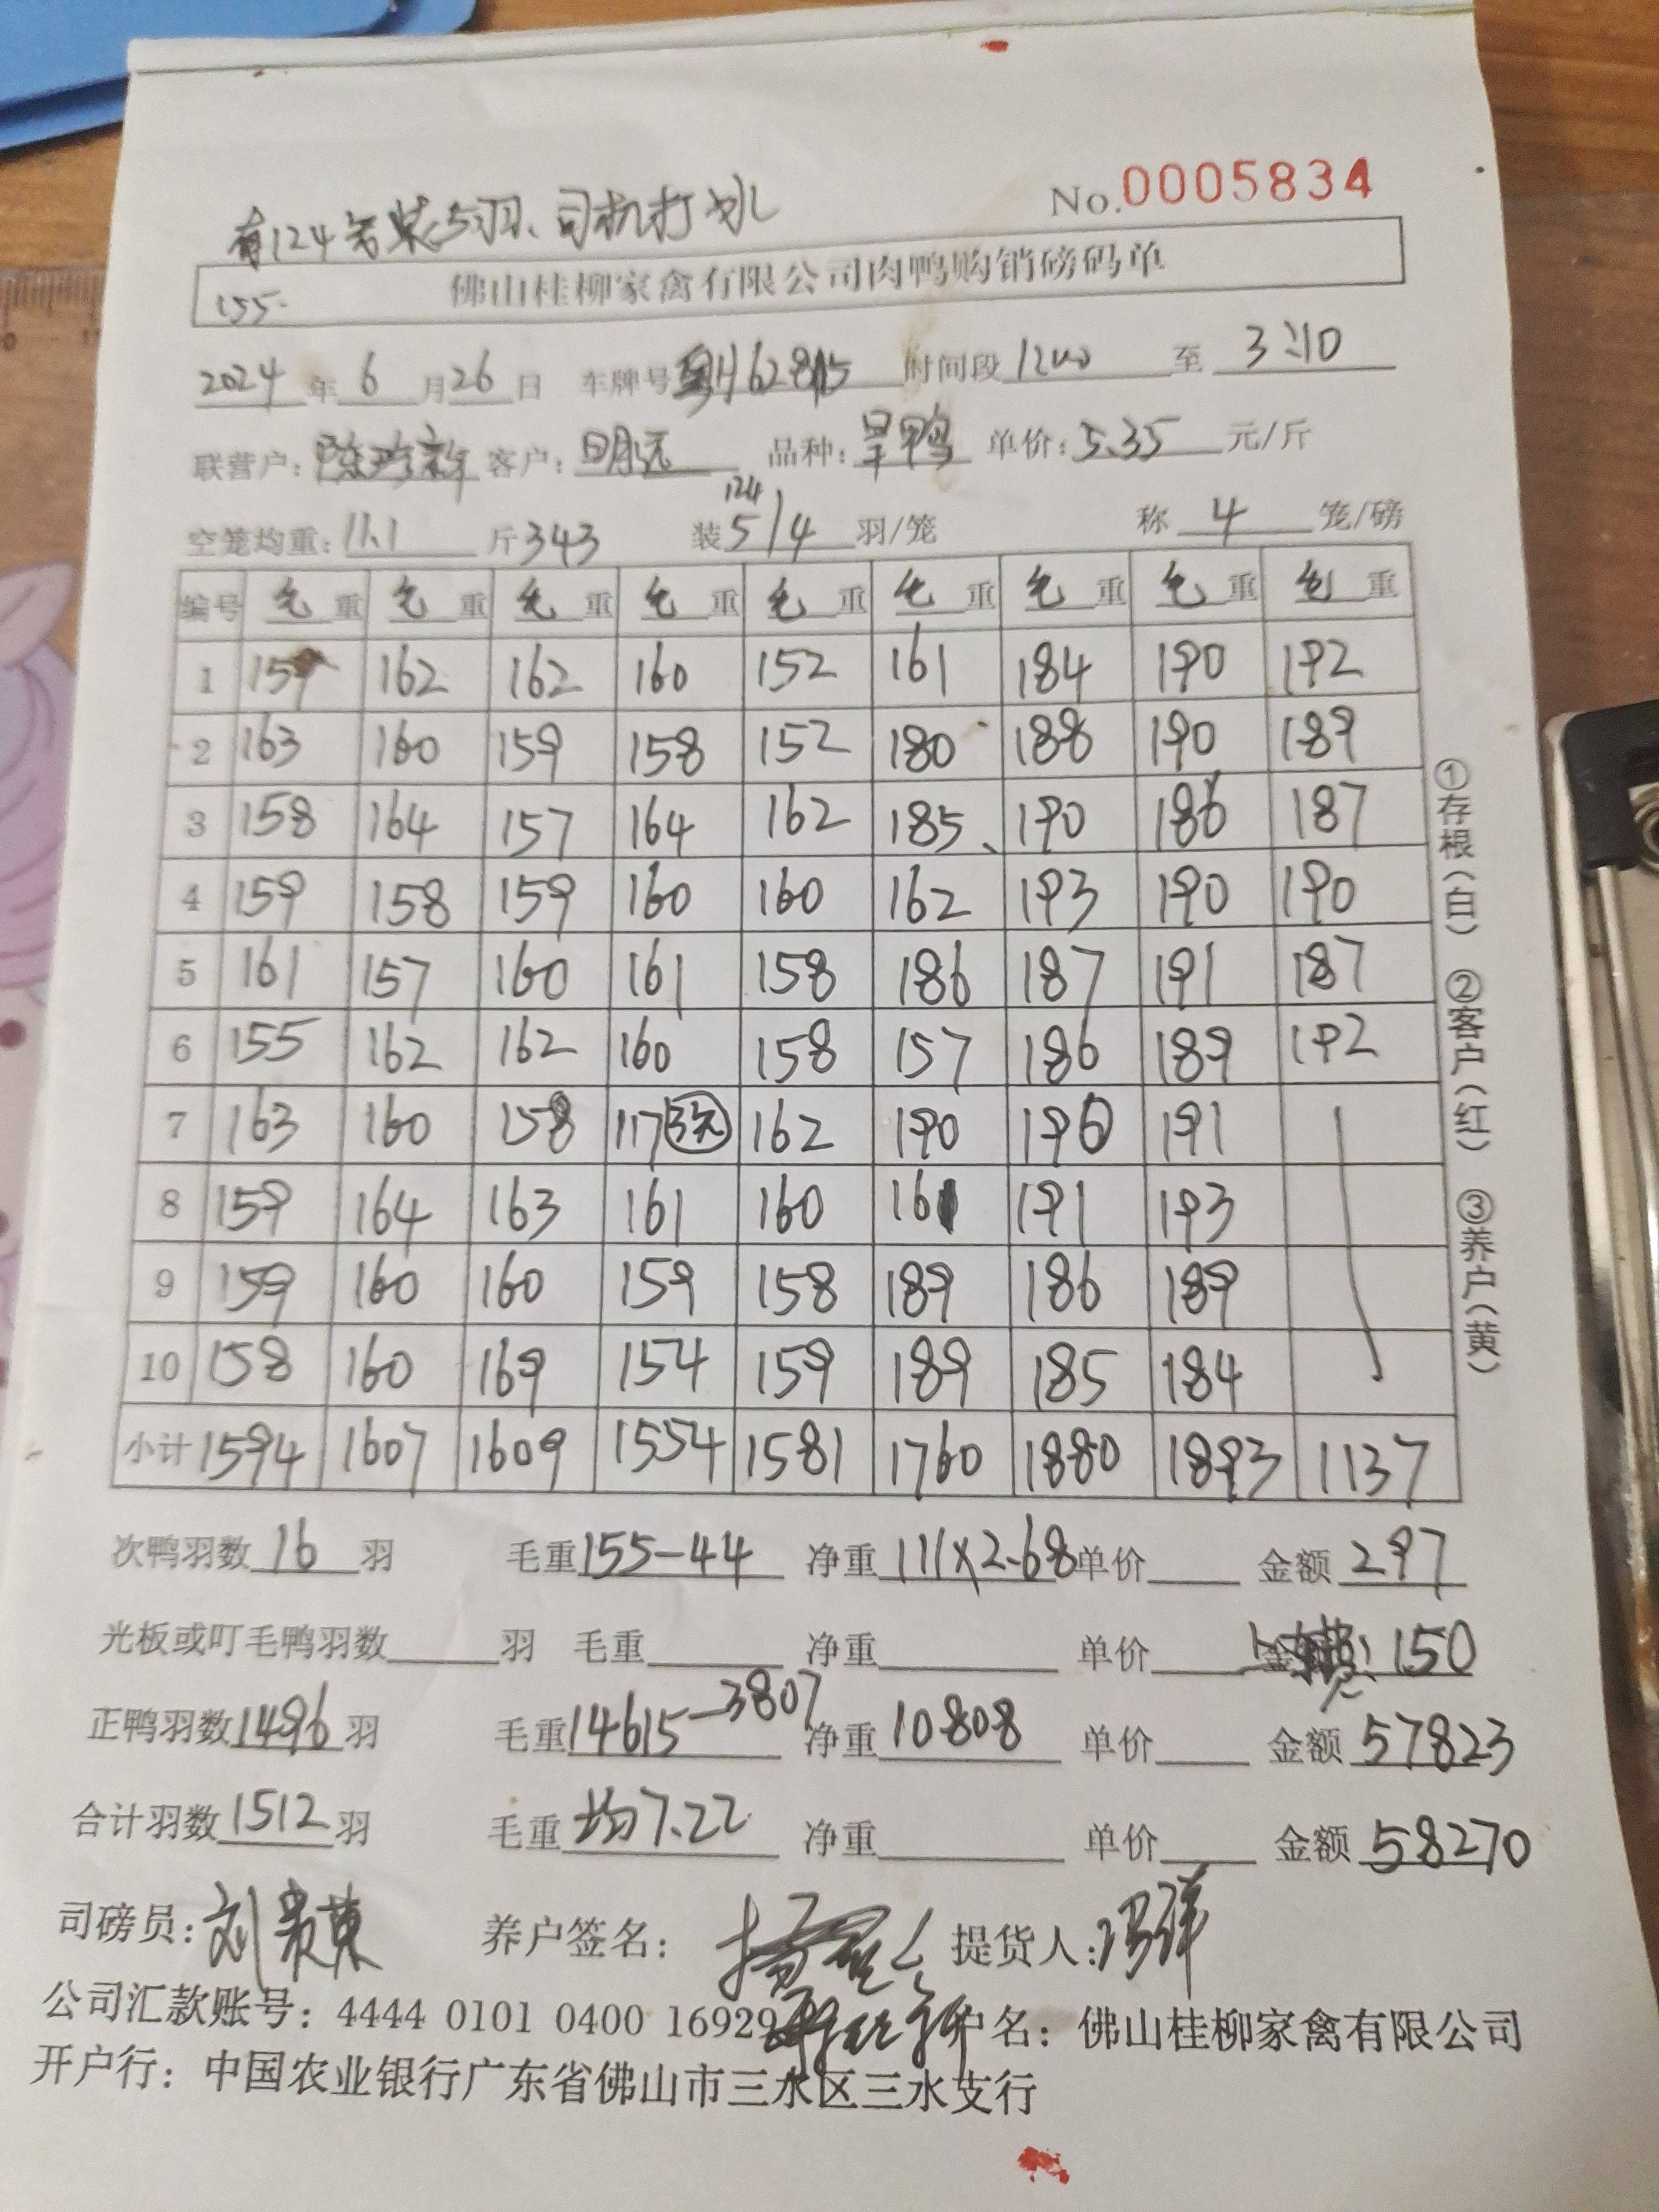 No.0005834
有124笼装5羽、司机打
155-
佛山桂柳家禽有限公司肉鸭购销磅码单
2024年6月26日 车牌号 时间段1200至3:10
联营户: 客户:明远 品种:旱鸭 单价:5.35元/斤
空笼均重:11.1斤343 装124 5/4羽/笼 称4笼/磅
编号 毛重 毛重 毛重 毛重 毛重 毛重 毛重 毛重 毛重
1 159 162 162 160 152 161 184 190 192
2 163 160 159 158 152 180 188 190 189
3 158 164 157 164 162 185 190 186 187
4 159 158 159 160 160 162 193 190 190
5 161 157 160 161 158 186 187 191 187
6 155 162 162 160 158 157 186 189 192
7 163 160 158 117 3笼 162 190 190 191
8 159 164 163 161 160 161 191 193
9 159 160 160 159 158 189 186 189
10 158 160 169 154 159 189 185 184
小计 1594 1607 1609 1554 1581 1760 1880 1893 1137
次鸭羽数16羽 毛重155-44 净重111×2.68 单价 金额297
光板或叮毛鸭羽数 羽 毛重 净重 单价 150
正鸭羽数1496羽 毛重14615-3807 净重10808 单价 金额57823
合计羽数1512羽 毛重均7.22 净重 单价 金额58270
司磅员:刘贵东 养户签名: 提货人:
公司汇款账号:4444 0101 0400 16929 户名:佛山桂柳家禽有限公司
开户行:中国农业银行广东省佛山市三水区三水支行
①存根(白) ②客户(红) ③养户(黄)